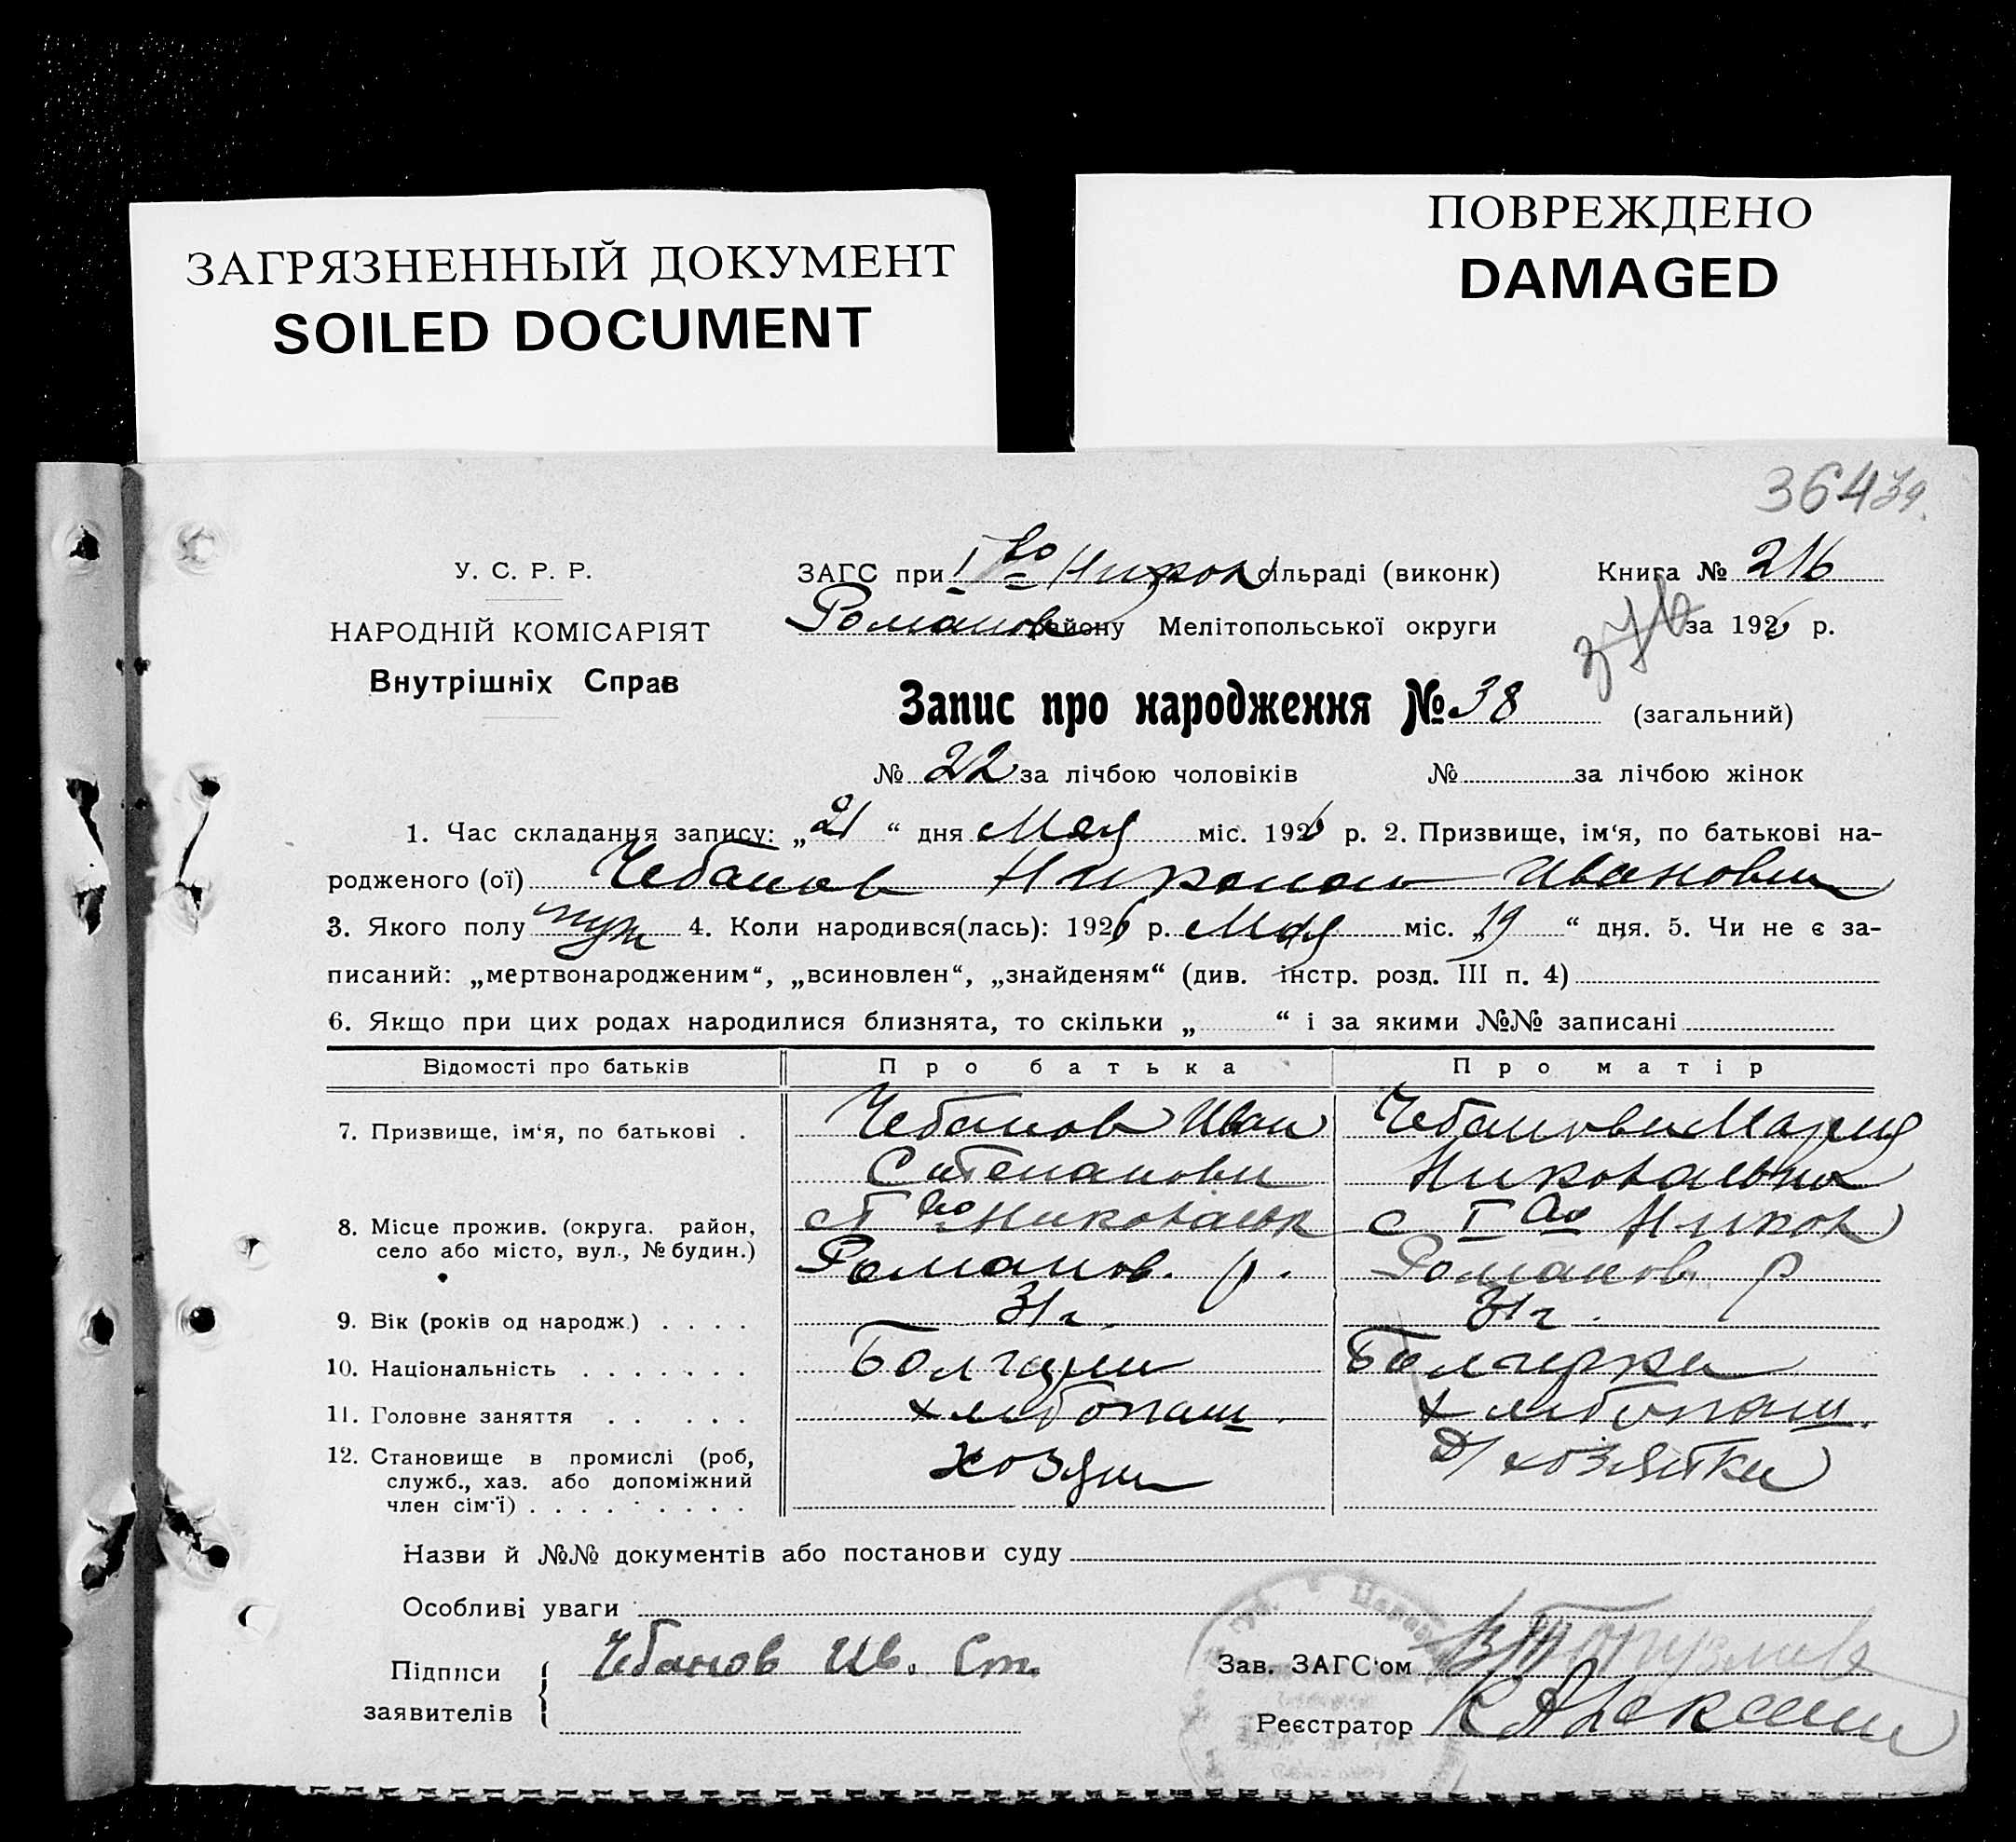 ЗАГРЯЗНЕННЫЙ ДОКУМЕНТ
SOILED DOCUMENT
ПОВРЕЖДЕНО
DAMAGED
364 39
У. С. Р. Р.
НАРОДНІЙ КОМІСАРІЯТ
Внутрішніх Справ
ЗАГС при I во Никол сільраді (виконк) Книга № 216
Романов району Мелітопольської округи за 1926 р.
376
Запис про народження № 38 (загальний)
№ 22 за лічбою чоловіків № за лічбою жінок
1. Час складання запису: „21“ дня Мая міс. 1926 р. 2. Призвище, ім'я, по батькові на-
родженого (ої) Чебанов Николай Иванович
3. Якого полу муж 4. Коли народився(лась): 1926 р. Мая міс. „19“ дня. 5. Чи не є за-
писаний: „мертвонародженим“, „всиновлен“, „знайденям“ (див. інстр. розд. III п. 4)
6. Якщо при цих родах народилися близнята, то скільки „ “ і за якими №№ записані
Відомості про батьків Про батька Про матір
7. Призвище, ім'я, по батькові . Чебанов Иван Чебанова Мария
Степанови Николаевна
8. Місце прожив. (округа. район, с I во Николаевк с I во Никол
село або місто, вул., № будин.) Романов. р. Романов. р
9. Вік (років од народж.) . . . . 31 г. 31 г.
10. Національність . . . . . . . Болгари Болгарка
11. Головне заняття . . . . . хлибопаш. хлибопаш.
12. Становище в промислі (роб, хозяин д/хозяйки
служб., хаз. або допоміжний
член сім'ї) . . . . . . . . .
Назви й №№ документів або постанови суду
Особливі уваги
Підписи Чебанов Ив. Ст. Зав. ЗАГС'ом
заявителів Реєстратор